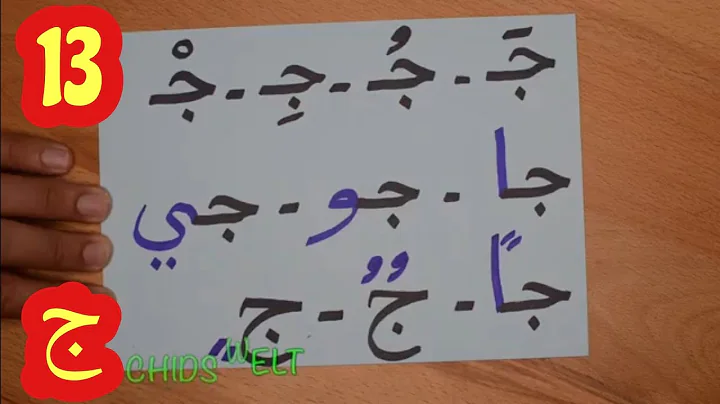 13
جَـ - جُـ - جِـ - جْـ
جا - جو - جي
جاً - جٌ - جٍ
ج
CHIDS WELT